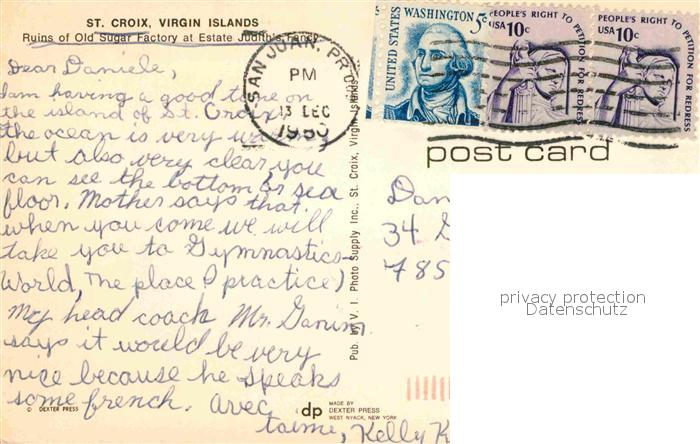 ST. CROIX, VIRGIN ISLANDS
Ruins of Old Sugar Factory at Estate Judith's Fancy
Dear Daniele,
I am having a good time on
the island of St. Croix
the ocean is very
but also very clear you
can see the bottom or sea
floor. Mother says that
when you come we will
take you to Gymnastics
World, (The place I practice)
My head coach Mr. Ganim
says it would be very
nice because he speaks
some french. avec
taime, Kelly K
© DEXTER PRESS
dp
MADE BY
DEXTER PRESS
WEST NYACK, NEW YORK
Pub. by V. I. Photo Supply Inc., St. Croix, Virgin Islands
SAN JUAN, PR
PM
13 DEC
1980
UNITED STATES
WASHINGTON 5c
PEOPLE'S RIGHT TO PETITION FOR REDRESS
USA 10c
PEOPLE'S RIGHT TO PETITION FOR REDRESS
USA 10c
post card
Dan
34
785
privacy protection
Datenschutz